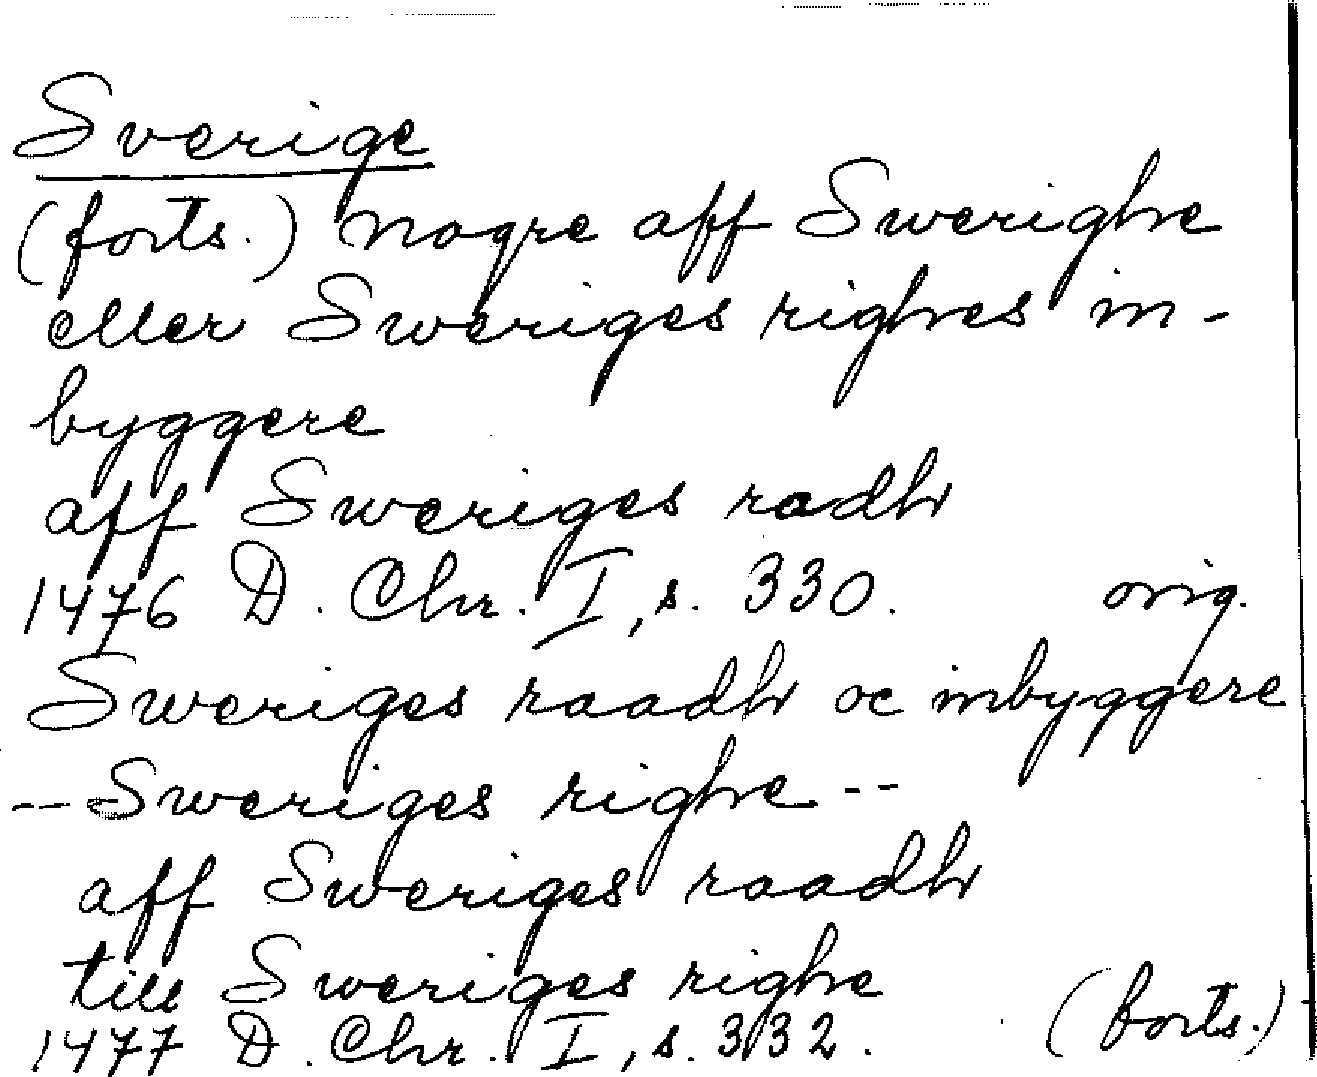 Sverige
(forts.) nogre aff Swerighe
eller Sweriges righes in-
byggere
aff Sweriges radh
1476 D. Chr. I, s. 330. orig.
Sweriges raadh oc inbyggere
-- Sweriges righe --
aff Sweriges raadh
till Sweriges righe
1477 D. Chr. I, s. 332. (forts.)